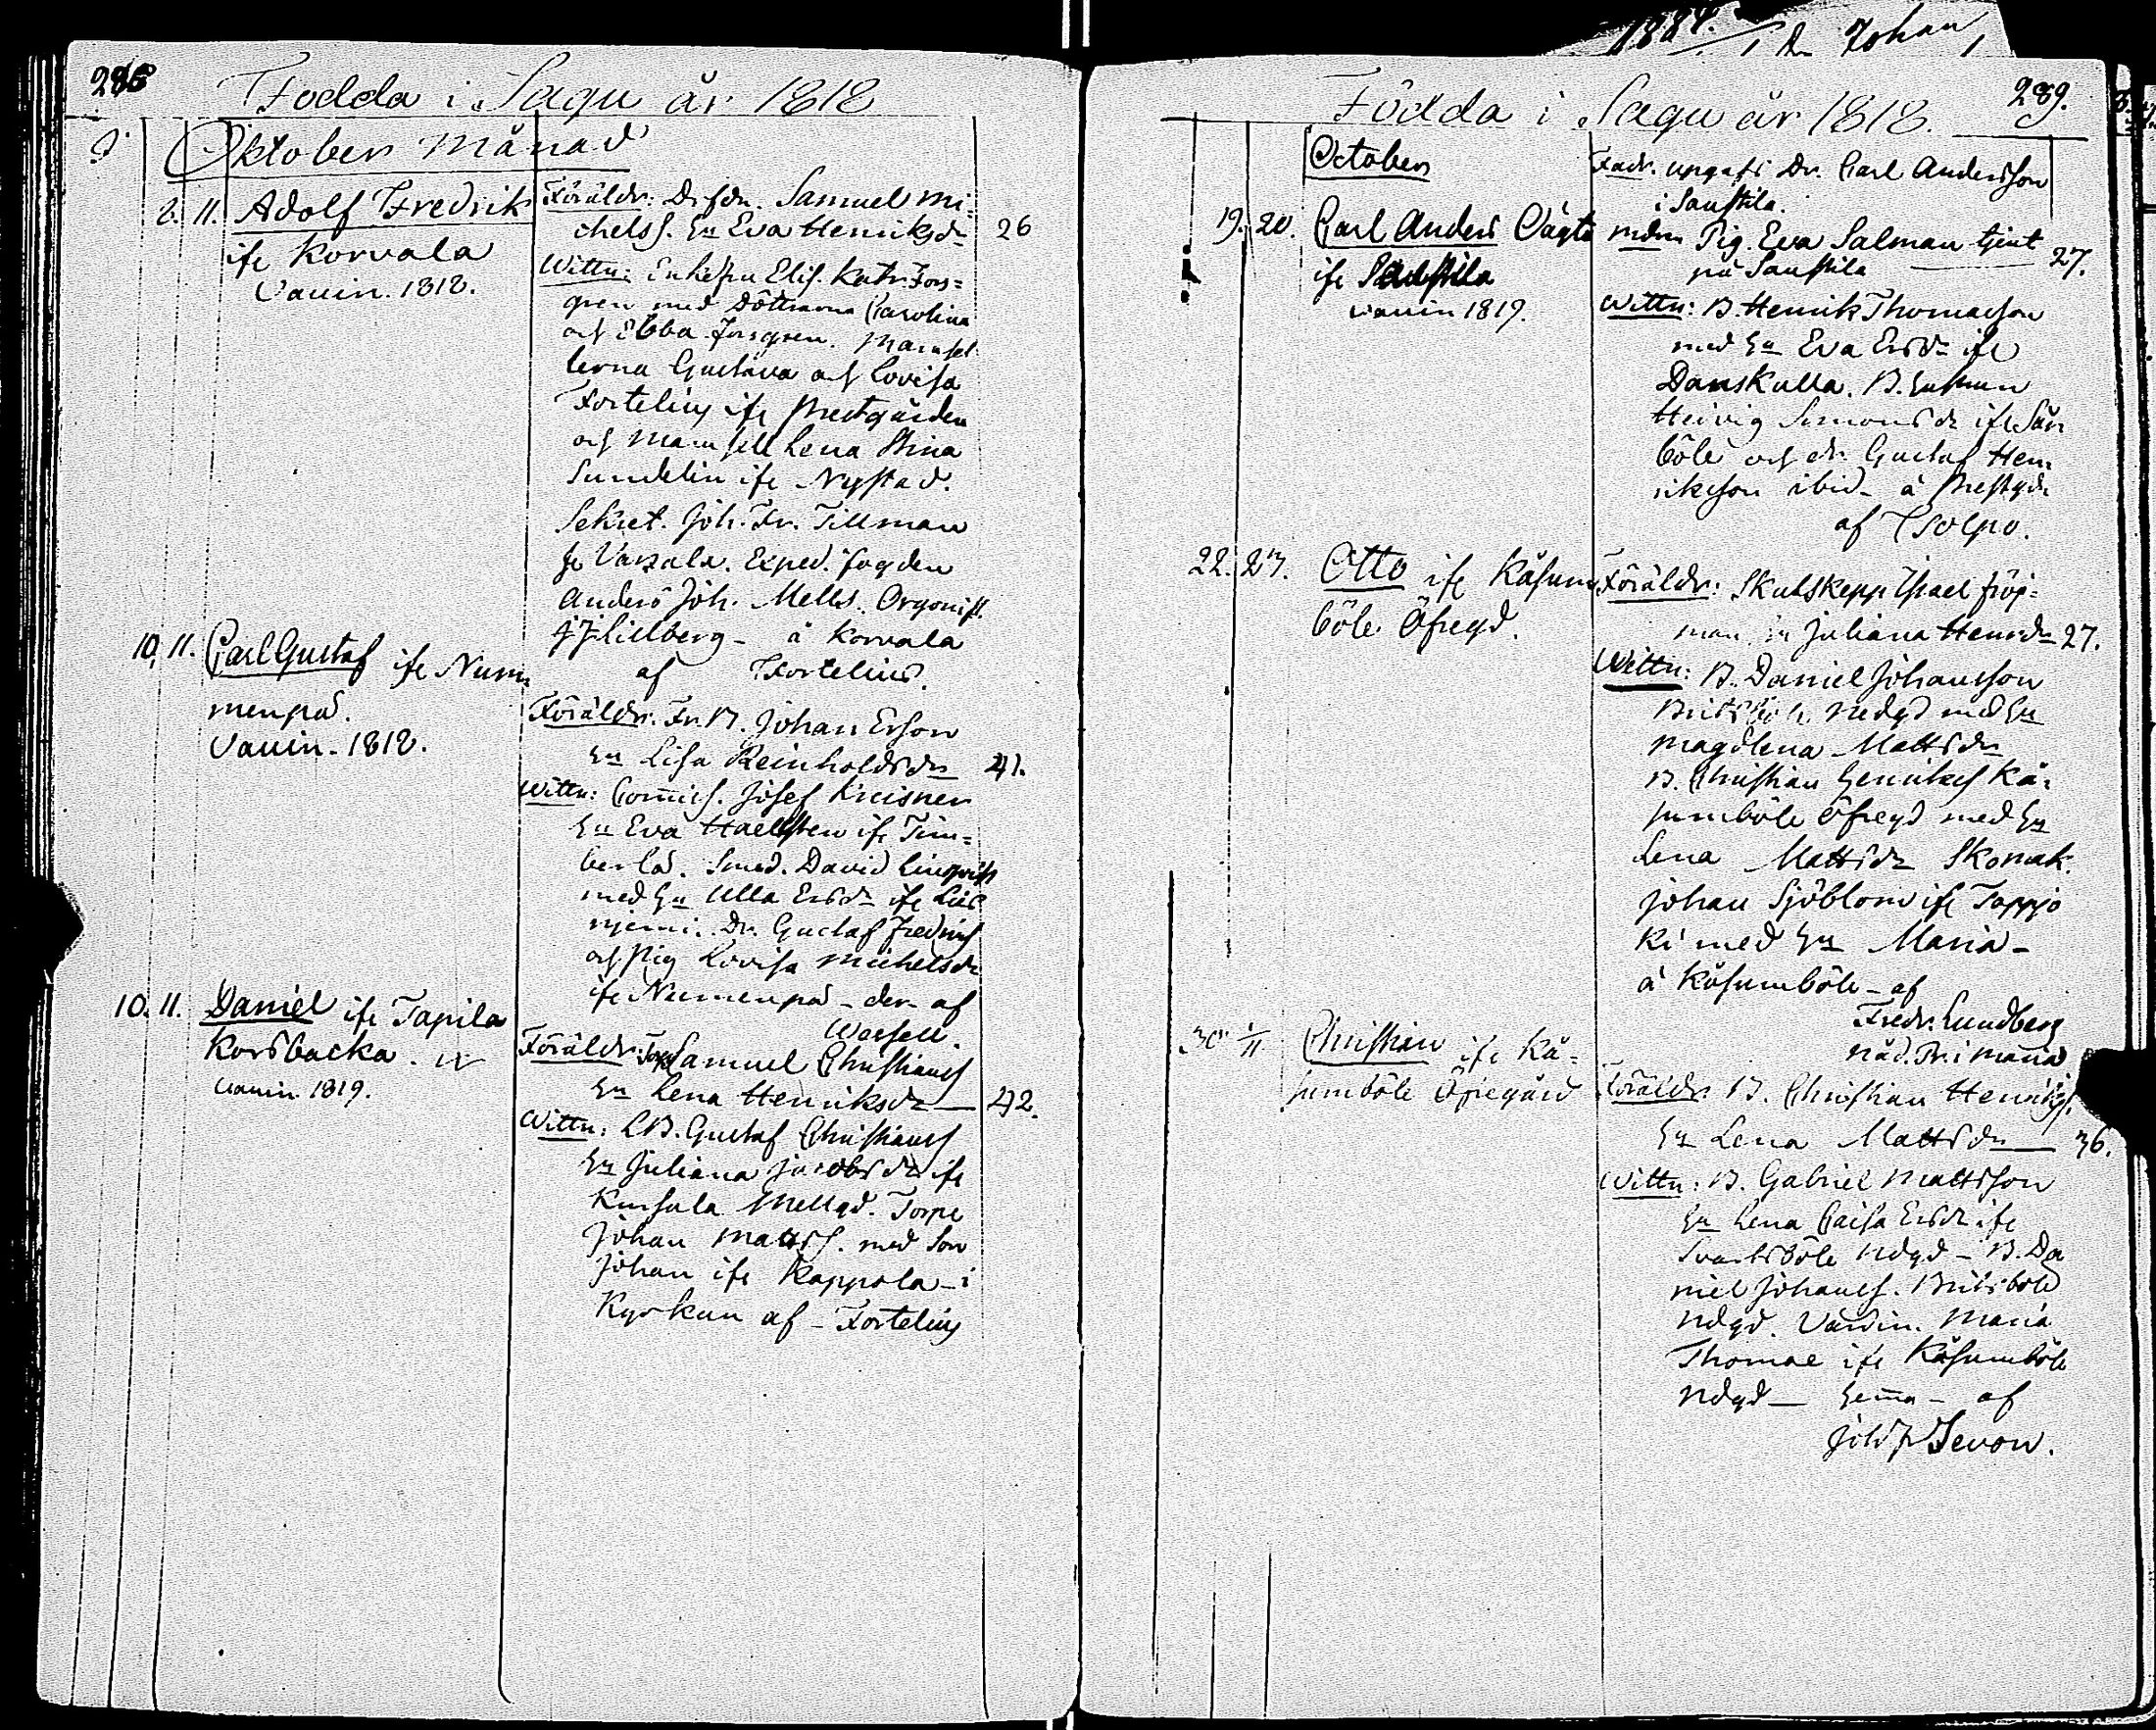 Födda i Sagu år 1818
Oktober Månad
8. 11. Adolf Fredrik
ifr Korvala
Vauin. 1818.
Föräldr: Samuel Mi-
chelss. Hu Eva Henriksdr 26
Wittn: Enkefru Elis. Katr. Fors=
gren med Döttrarna Carolina
och Ebba Forsgren. Mamsel
lerna Gustava och Lovisa
Fortelius ifr Prestgården
och Mamsell Lena Stina
Sundelin ifr Nystad.
Sekret. Joh. Fr. Tillman
fr Varsala. Exped. fogden
Anders Joh. Organist.
Lillberg - å Korvala
af Fortelius.
10. 11. Carl Gustaf ifr Num
menpä.
Vauin. 1818.
Föräldr: Johan Erson
Hu Lisa Reinholdsdr 41.
Wittn: Josef Kreisner
Hu Eva ifr Tim=
Smed. David
med Hu Ulla Ersdr ifr
Dr. Gustaf
och Pig Lovisa Michelsdr
ifr Numenpä - den af
10. 11. Daniel ifr Tapila
Korsbacka.
Vauin. 1819.
Föräldr: Samuel Christianss
Hu Lena Henriksdr 42.
Wittn: Gustaf Christianss
Hu Juliana Jacobsdr ifr
Johan Mattss. med Son
Johan ifr Kappala - i
Kyrkan af - Fortelius
1884. Johan
Födda i Sagu år 1818. 289.
October
19. 20. Carl Anders Oägta
ifr Saustila
Vauin 1819.
Fadr. upgafs Dr. Carl Andersson
i Saustila.
Pig. Eva Salman tjent
på Saustila 27.
Wittn: B. Henrik Thomasson
med Hu Eva Ersdr ifr
Danskulla. B. Hustrun
Heivig Simonsdr ifr Sån
böle och dr. Gustaf Hen
riksson ibid - å Prestgdn
af Tsolpo.
22. 23. Otto ifr Kåsum
böle Öfregd.
Föräldr: Israel
Juliana Henrsdr 27.
Wittn: B. Daniel Johansson
Nedgd med Hu
Magdlena Mattsdr
B. Christian Henrikss Kå=
sumböle Öfregd med Hu
Lena Mattsdr Skomak.
Johan Sjöblom ifr Tappo
ki med Hu Maria -
å Kåsumböle - af
Fredr. Lundberg
30 1/11 Christian ifr Kå=
sumböle Öfregård
Föräldr: B. Christian Henrikss.
Hu Lena Mattsdr 36.
Wittn: B. Gabriel Mattsson
Hu Lena Caisa Ersdr ifr
Svartsböle Ndgd - B. Da
niel Johanss. Britsböle
Ndgd. Maria
Thomae ifr Kåsumböle
Ndgd - hema - af